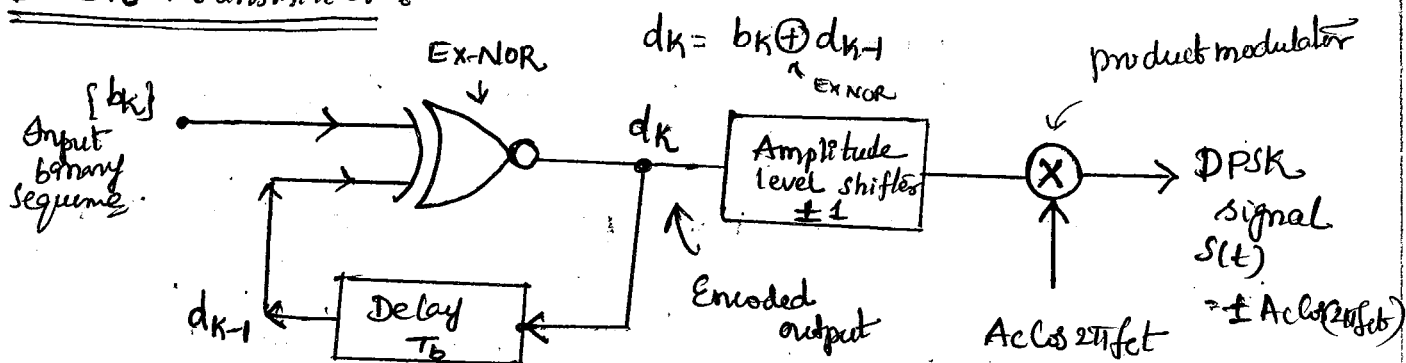 dK = bK ⊕ dK-1
Ex-NOR
EX NOR
product modulator
{bK}
Input
binary
sequence.
dK
Amplitude
level shifter
± 1
X
DPSK
signal
S(t)
= ± Ac Cos(2πfct)
Delay
Tb
dK-1
Encoded
output
Ac Cos 2πfct